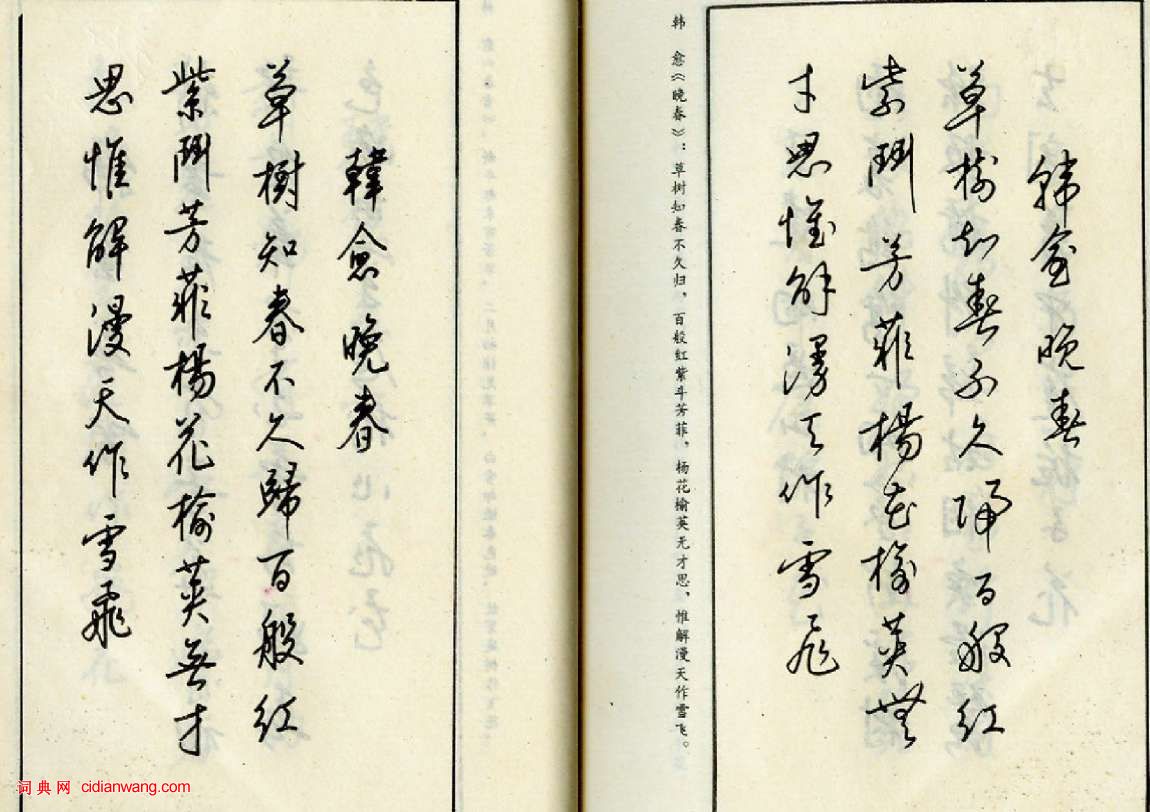 韓愈晚春
草樹知春不久歸百般紅
紫鬥芳菲楊花榆莢無
才思惟解漫天作雪飛
韩 愈《晚春》:草树知春不久归,百般红紫斗芳菲,杨花榆英无才思,惟解漫天作雪飞。
韓愈晚春
草樹知春不久歸百般紅
紫鬥芳菲楊花榆莢無才
思惟解漫天作雪飛
词典网 cidianwang.com